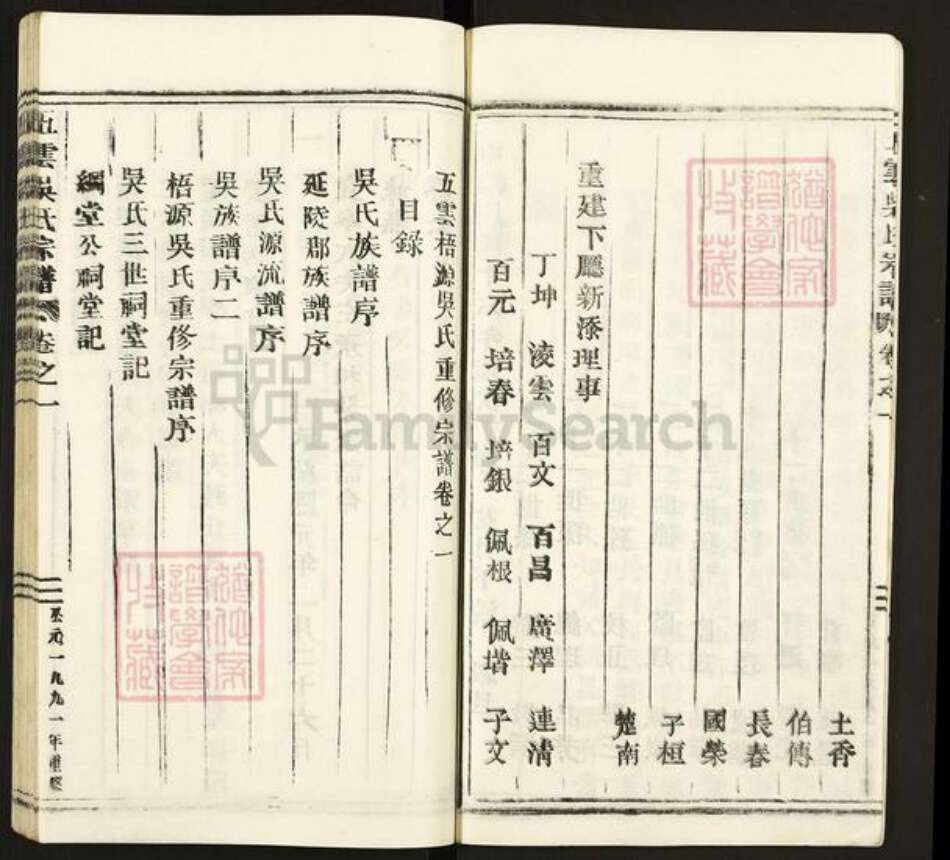 土香
伯傳
長春
國榮
子桓
楚南
重建下廳新添理事
丁坤 淩雲 百文 百昌 廣澤 連清
百元 培春 培銀 佩根 佩堦 子文
五雲梧源吳氏重修宗譜卷之一
目錄
吳氏族譜序
延陵郡族譜序
吳氏源流譜序
吳族譜序二
梧源吳氏重修宗譜序
吳氏三世祠堂記
綱堂公祠堂記
五雲吳氏宗譜 卷之一
公元一九九一年重修
FamilySearch
譜學會
收藏
譜學會
收藏